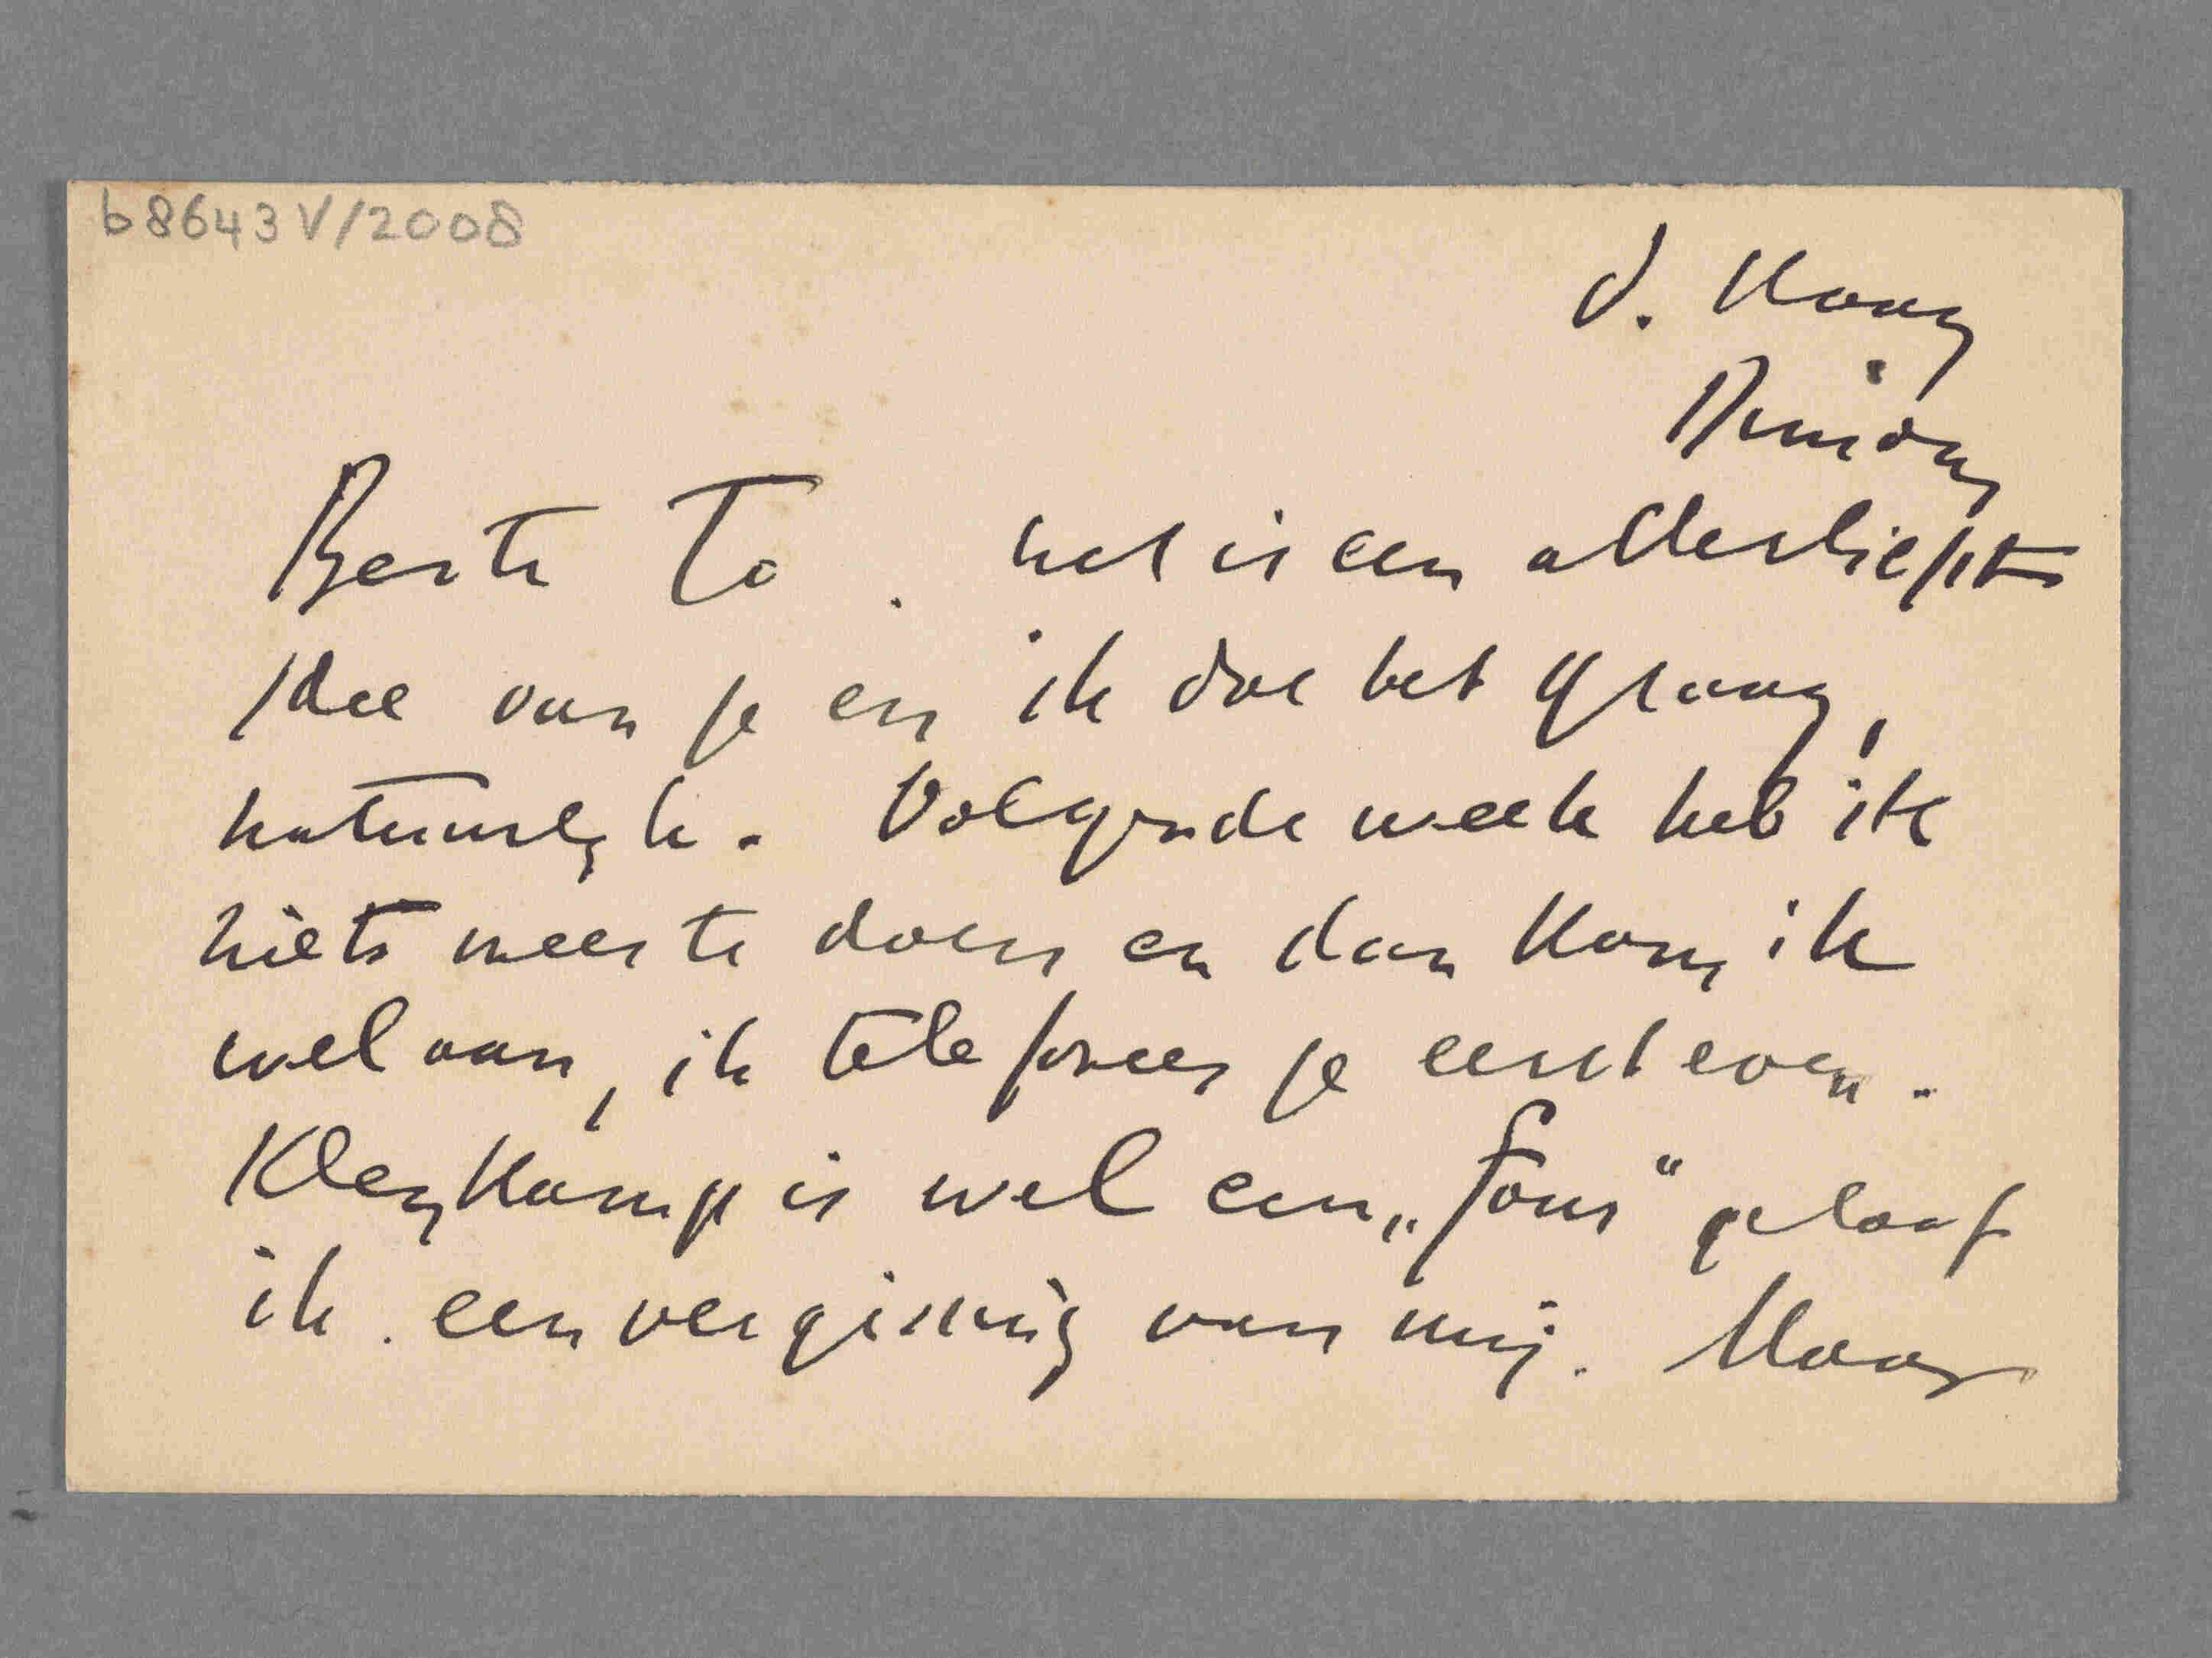 b8643 V/2008
d. Haag
Dinsdag
Beste To. het is een allerliefst
idee van je en ik doe het graag,
natuurlijk. Volgende week heb ik
niets meer te doen en dan kom ik
wel aan, ik telefoneer je eerst even.
Kleykamp is wel een „fout“ geloof
ik. een vergissing van mij. Maar